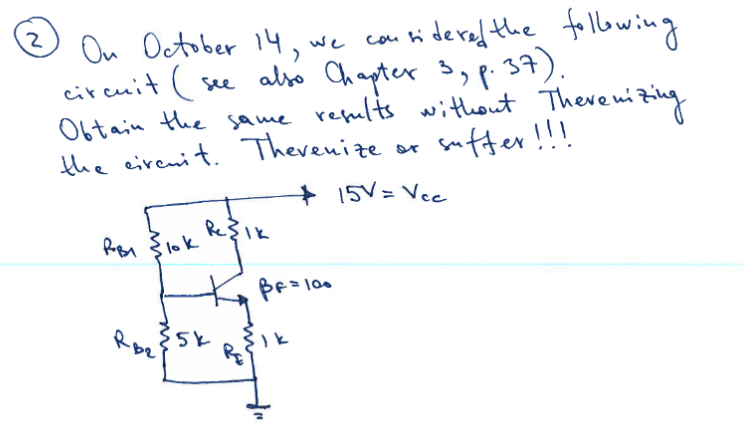 2 On October 14, we considered the following
circuit ( see also Chapter 3, p. 37).
Obtain the same results without Thevenizing
the circuit. Thevenize or suffer!!!
15V = Vcc
RB1 10k RC 1k
βF=100
RB2 5k RE 1k